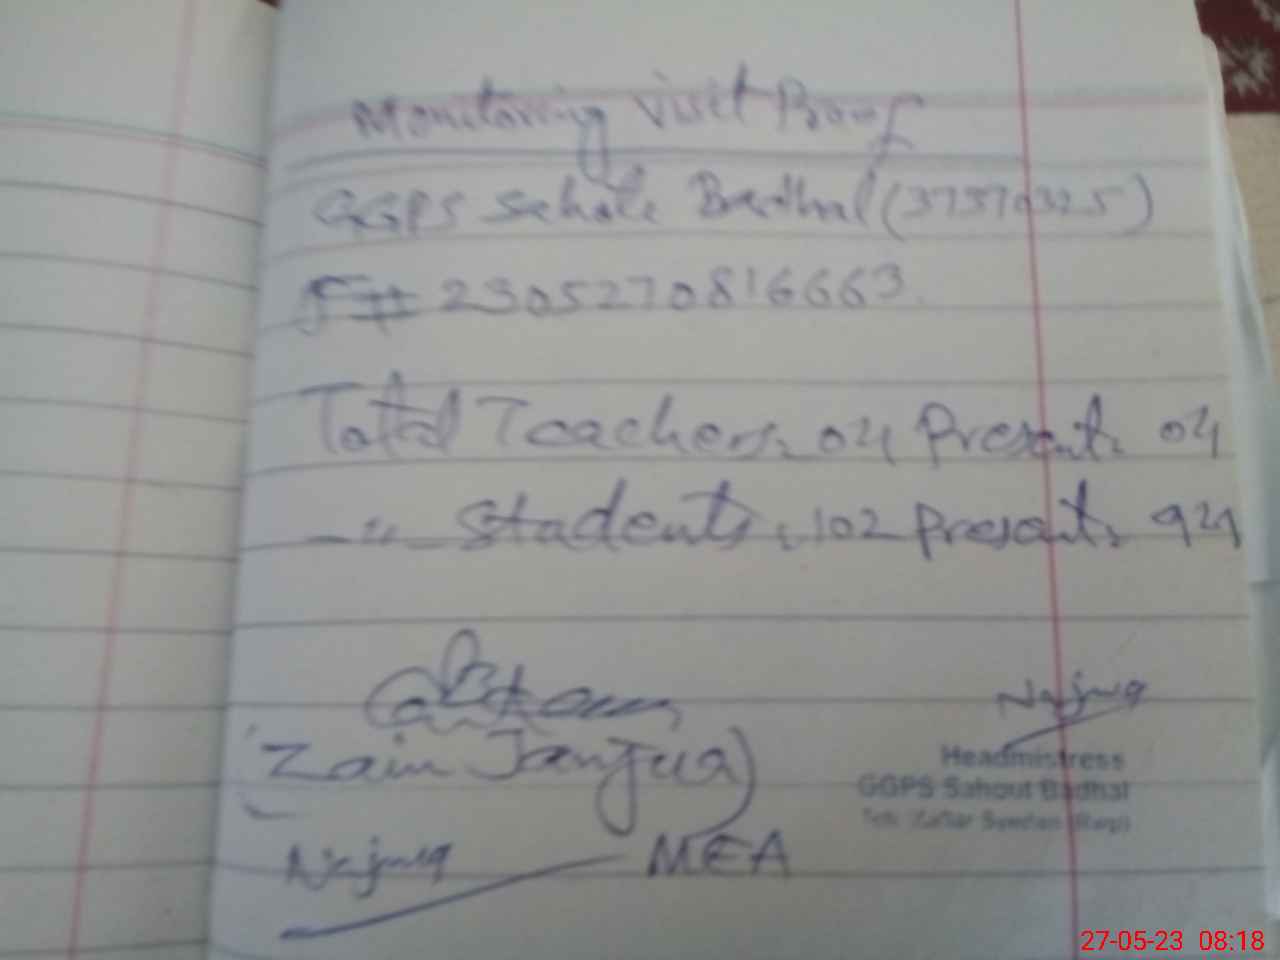 Monitoring Visit Proof
GGPS Sahote Badhal (37370325)
F# 2305270816663
Total Teachers. 04 Present. 04
-"- Students. 102 Present. 94
(Zain Janjua)
Najma
Headmistress
GGPS Sahout Badhal
Najma MEA
27-05-23 08:18